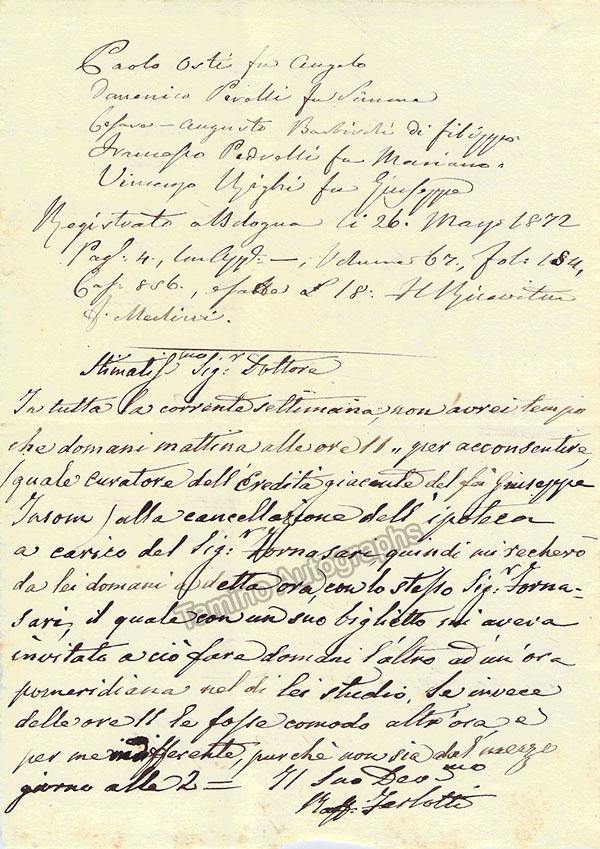 Paolo Osti fu Angelo
Domenico Perelli fu Simone
Cesare-Augusto Barbirolli di filippo
Francesco Pedrelli fu Mariano
Vincenzo Righi fu Giuseppe
Registrato a Bologna li 26. Maggio 1872
Pag.e 4., —, Volume 67., fol: 184,
Cas. 886., esatte £ 18: Il Ricevitore
Stimatiss.mo Sig.r Dottore
In tutta la corrente settimana, non avrei tempo
che domani mattina alle ore 11 „ per acconsentire,
(quale curatore dell'Eredità giacente del fù Giuseppe
Insom) alla cancellazione dell'ipoteca
a carico del Sig.r Fornasari, quindi mi recherò
da lei domani a detta ora, con lo stesso Sig.r Forna-
sari, il quale con un suo biglietto mi aveva
invitato a ciò fare domani l'altro ad un'ora
pomeridiana nel di lei studio. Se invece
delle ore 11 le fosse comodo altr'ora, è
per me indifferente, purchè non sia dal mezzo
giorno alle 2 = Il Suo Dev.mo
Raff.
Tamino Autographs